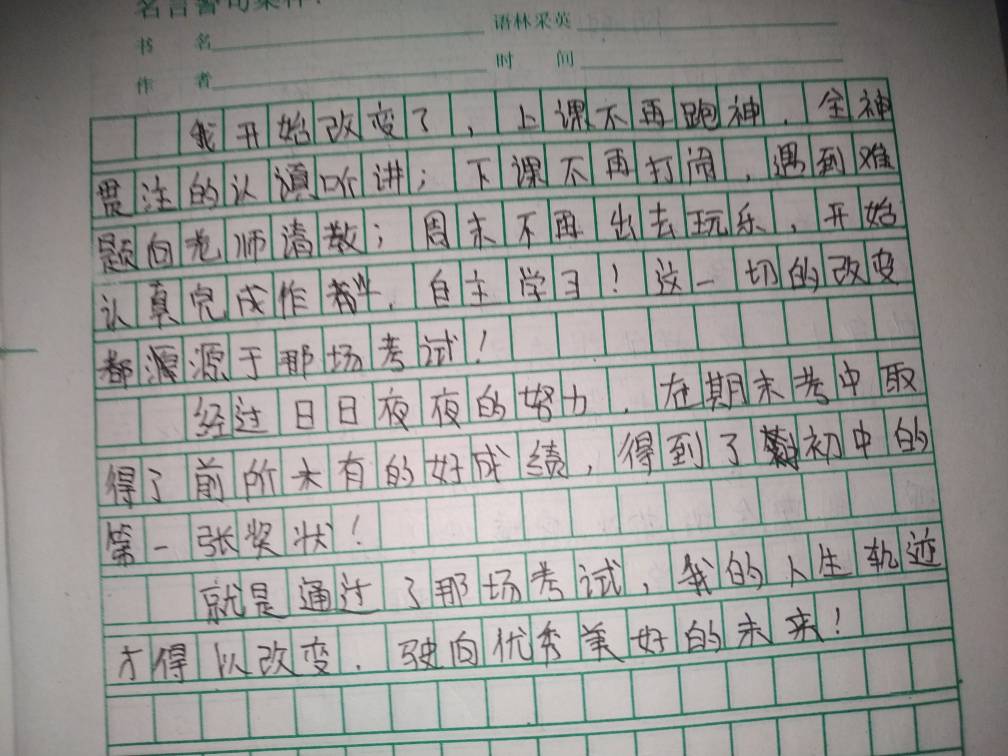 名言警句集粹:
书 名 语林采英
作 者 时 间
我开始改变了,上课不再跑神.全神
贯注的认真听讲;下课不再打闹,遇到难
题向老师请教;周末不再出去玩乐,开始
认真完成作业.自主学习!这一切的改变
都源于那场考试!
经过日日夜夜的努力.在期末考中取
得了前所未有的好成绩,得到了初中的
第一张奖状!
就是通过了那场考试,我的人生轨迹
才得以改变.驶向优秀美好的未来!